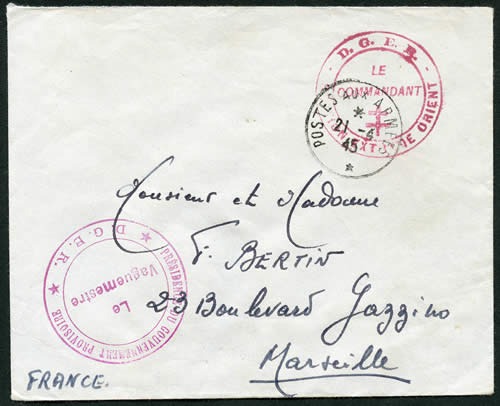 D. G. E. R.
LE
COMMANDANT
EXTRÊME ORIENT
POSTES AUX ARMÉES
*
21 -4
45
*
Monsieur et Madame
F. BERTIN
23 Boulevard Gazzino
Marseille
FRANCE.
PRÉSIDENCE DU GOUVERNEMENT PROVISOIRE
★ D. G. E. R. ★
Le
Vaguemestre